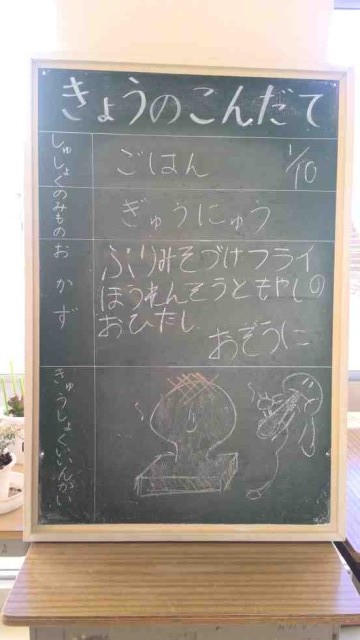 きょうのこんだて
しゅしょく ごはん 1/10
のみもの ぎゅうにゅう
おかず ぶりみそづけフライ
ほうれんそうともやしの
おひたし
おぞうに
きゅうしょくいいんかい